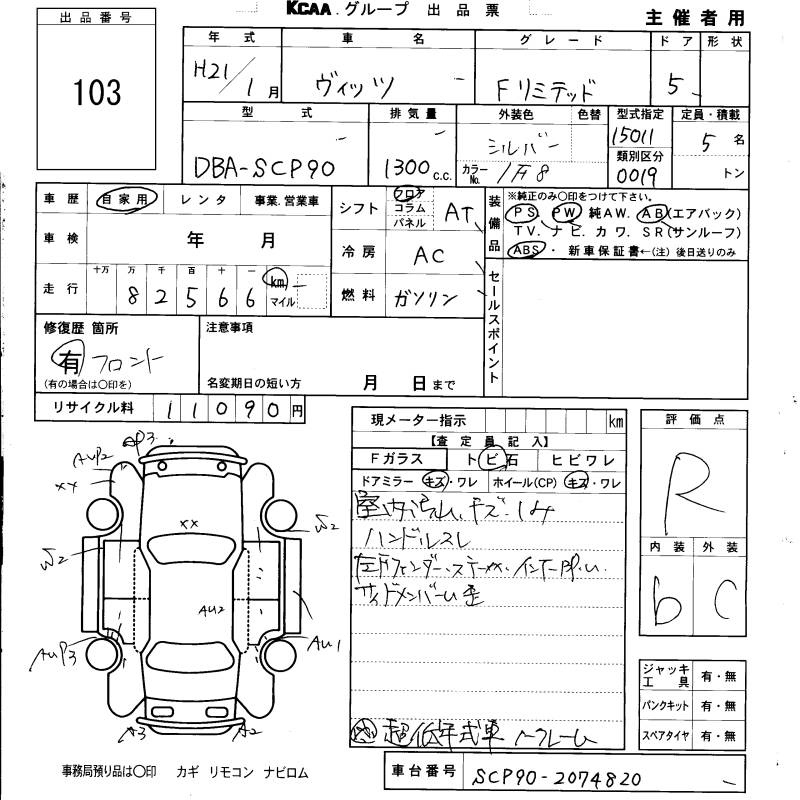 KCAA.グループ 出品票
主催者用
出品番号
103
年式 車名 グレード ドア 形状
H21/1月 ヴィッツ Fリミテッド 5
型式 排気量 外装色 色替 型式指定 定員・積載
DBA-SCP90 1300c.c. シルバー 15011 5名
カラーNo. 1F8 類別区分 0019 トン
車歴 自家用 レンタ 事業.営業車
車検 年 月
走行 十万 万 千 百 十 一 km マイル
8 2 5 6 6
シフト フロア コラム パネル AT
冷房 AC
燃料 ガソリン
装備品
※純正のみ〇印をつけて下さい。
PS. PW. 純AW. AB(エアバック)
TV. ナビ. カワ. SR(サンルーフ)
ABS・ 新車保証書←(注)後日送りのみ
セールスポイント
修復歴 箇所
有 フロント
(有の場合は〇印を)
注意事項
名変期日の短い方 月 日まで
リサイクル料 11090円
現メーター指示 km
【査定員記入】
Fガラス トビ石 ヒビワレ
ドアミラー キズ・ワレ ホイール(CP) キズ・ワレ
ハンドルスレ
超低年式車
評価点
R
内装 外装
b C
ジャッキ工具 有・無
パンクキット 有・無
スペアタイヤ 有・無
AP3
AUP2
XX
W2
XX
W2
AU2
AUP3
AU1
A3
A2
事務局預り品は〇印 カギ リモコン ナビロム
車台番号 SCP90-2074820